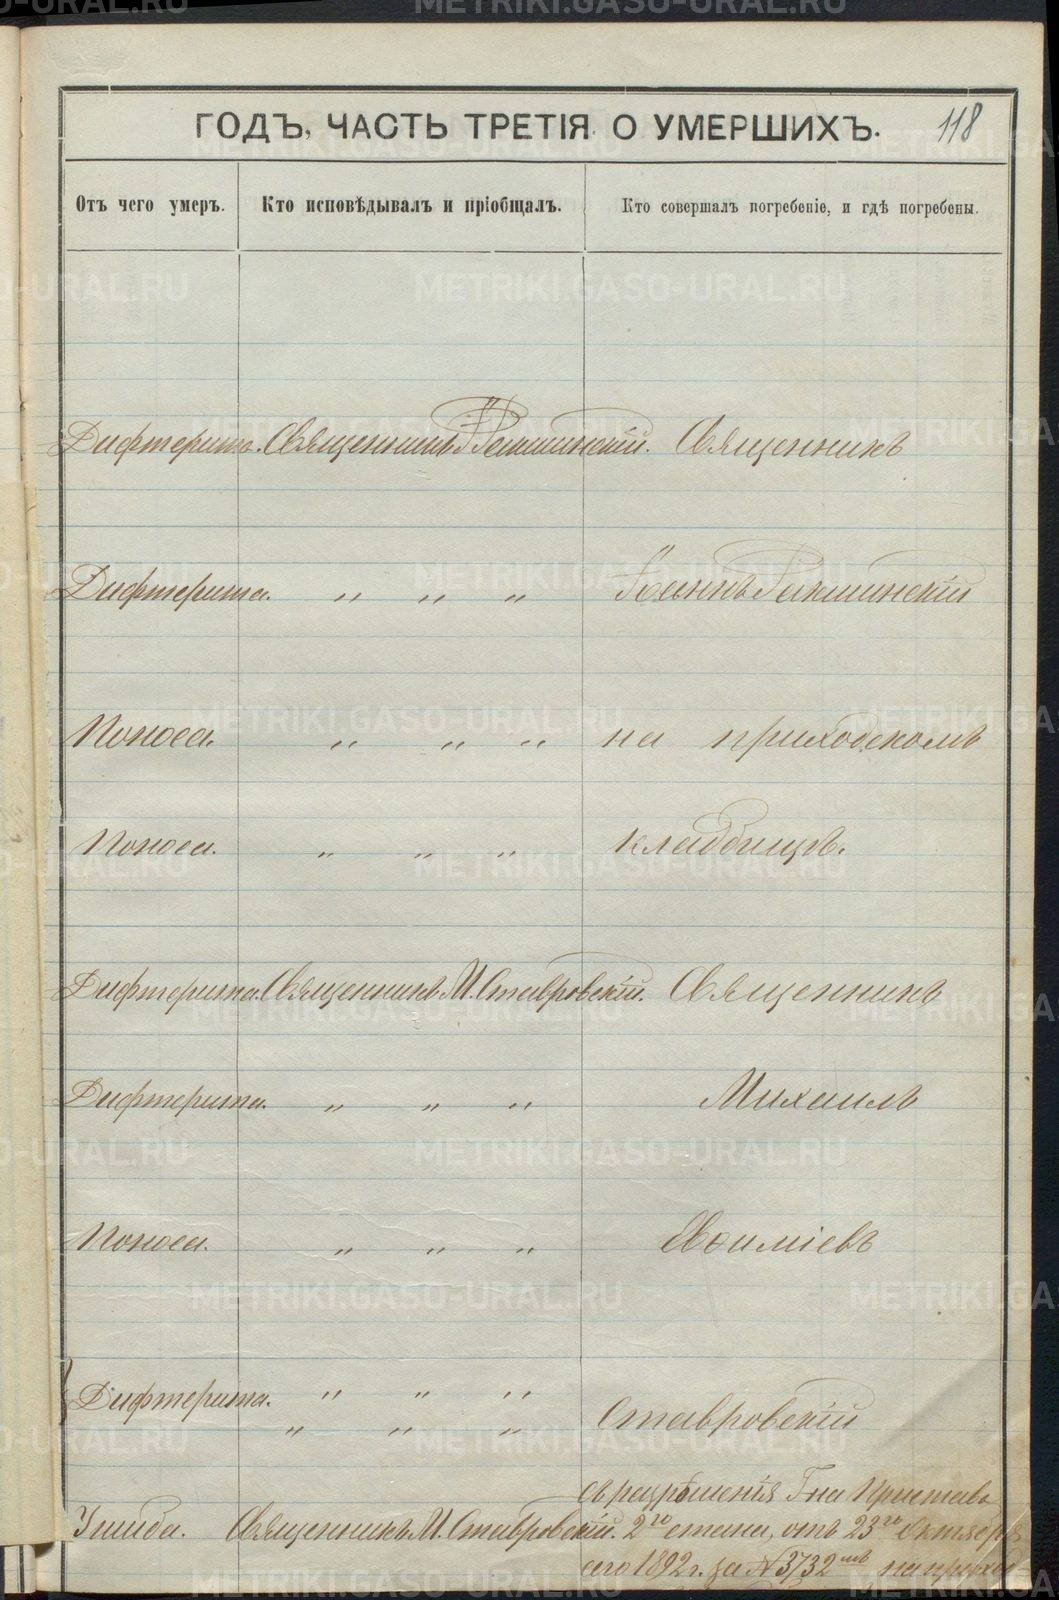 ГОДЪ, ЧАСТЬ ТРЕТІЯ О УМЕРШИХЪ. 118
Отъ чего умеръ. Кто исповѣдывалъ и пріобщалъ. Кто совершалъ погребеніе, и гдѣ погребены.
Дифтерита. Священникъ І. Рамшинскій. Священникъ
Дифтерита. " " " Іоаннъ Рамшинскій
Поноса. " " " на приходскомъ
Поноса. " " " кладбищѣ.
Дифтерита. Священникъ М. Ставровскій. Священникъ
Дифтерита. " " " Михаилъ
Поноса. " " "
Дифтерита. " " "
" " " Ставровскій
съ разрѣшенія Гна Пристава
Ушиба. Священникъ М. Ставровскій. 2го стана, отъ 23го Октября
сего 1892 г. за № 3732мъ на приход
METRIKI.GASO-URAL.RU